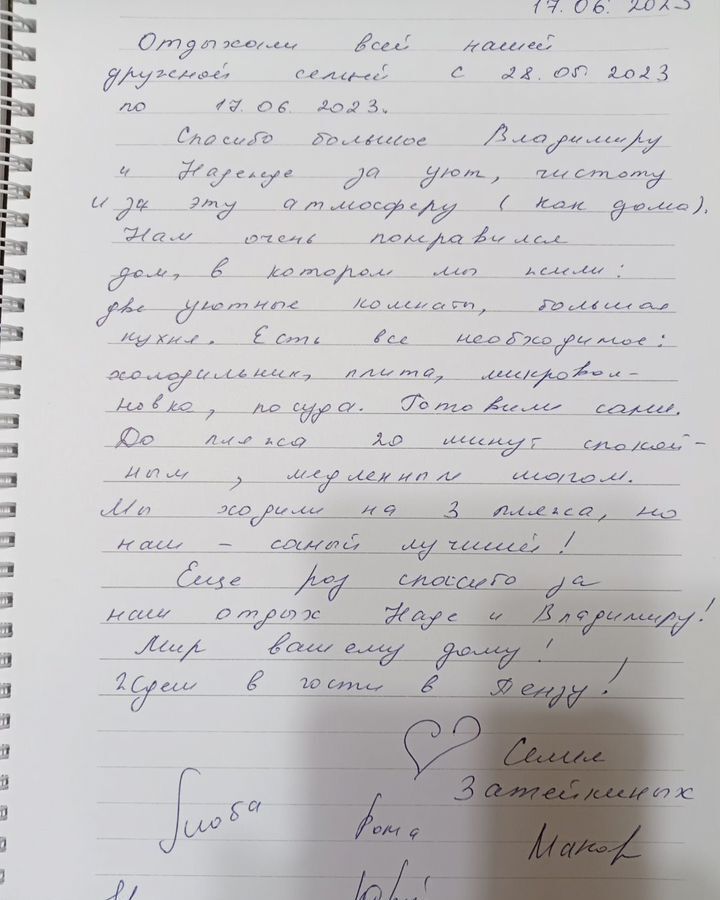 17.06. 2023
Отдыхали всей нашей
дружной семьёй с 28.05. 2023
по 17.06. 2023.
Спасибо большое Владимиру
и Надежде за уют, чистоту
и за эту атмосферу ( как дома).
Нам очень понравился
дом, в котором мы жили:
две уютные комнаты, большая
кухня. Есть все необходимое:
холодильник, плита, микровол-
новка, посуда. Готовили сами.
До пляжа 20 минут спокой-
ным, медленным шагом.
Мы ходили на 3 пляжа, но
наш - самый лучший!
Еще раз спасибо за
наш отдых Наде и Владимиру!
Мир вашему дому!
Ждем в гости в Пензу!
Семья
Затейкиных
Люба Рома Макар
Юрий